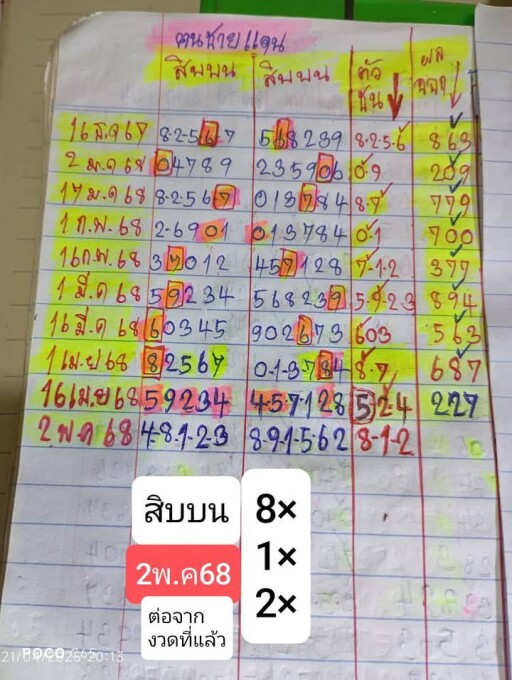 คนชายแดน
สิบบน สิบบน ตัว ผล
ชน
16 ธ.ค 67 8-2-5-6-7 568239 8-2-5-6 863
2 ม.ค 68 04789 235906 0-9 209
17 ม.ค 68 8-2-5-6-7 013784 8-7 779
1 ก.พ. 68 2-6901 013784 0-1 700
16 ก.พ. 68 37012 457128 7-1-2 377
1 มี.ค 68 59234 568239 5-9-2-3 894
16 มี.ค 68 60345 902673 603 563
1 เม.ย 68 82567 0-1-3-784 8-7 687
16 เม.ย 68 59234 4-5-7-128 5-2-4 227
2 พ.ค 68 4-8-1-2-3 8-9-1-5-6 2 8-1-2
สิบบน 8×
2พ.ค68 1×
ต่อจาก 2×
งวดที่แล้ว
POCO C65
21/04/2025 20:13